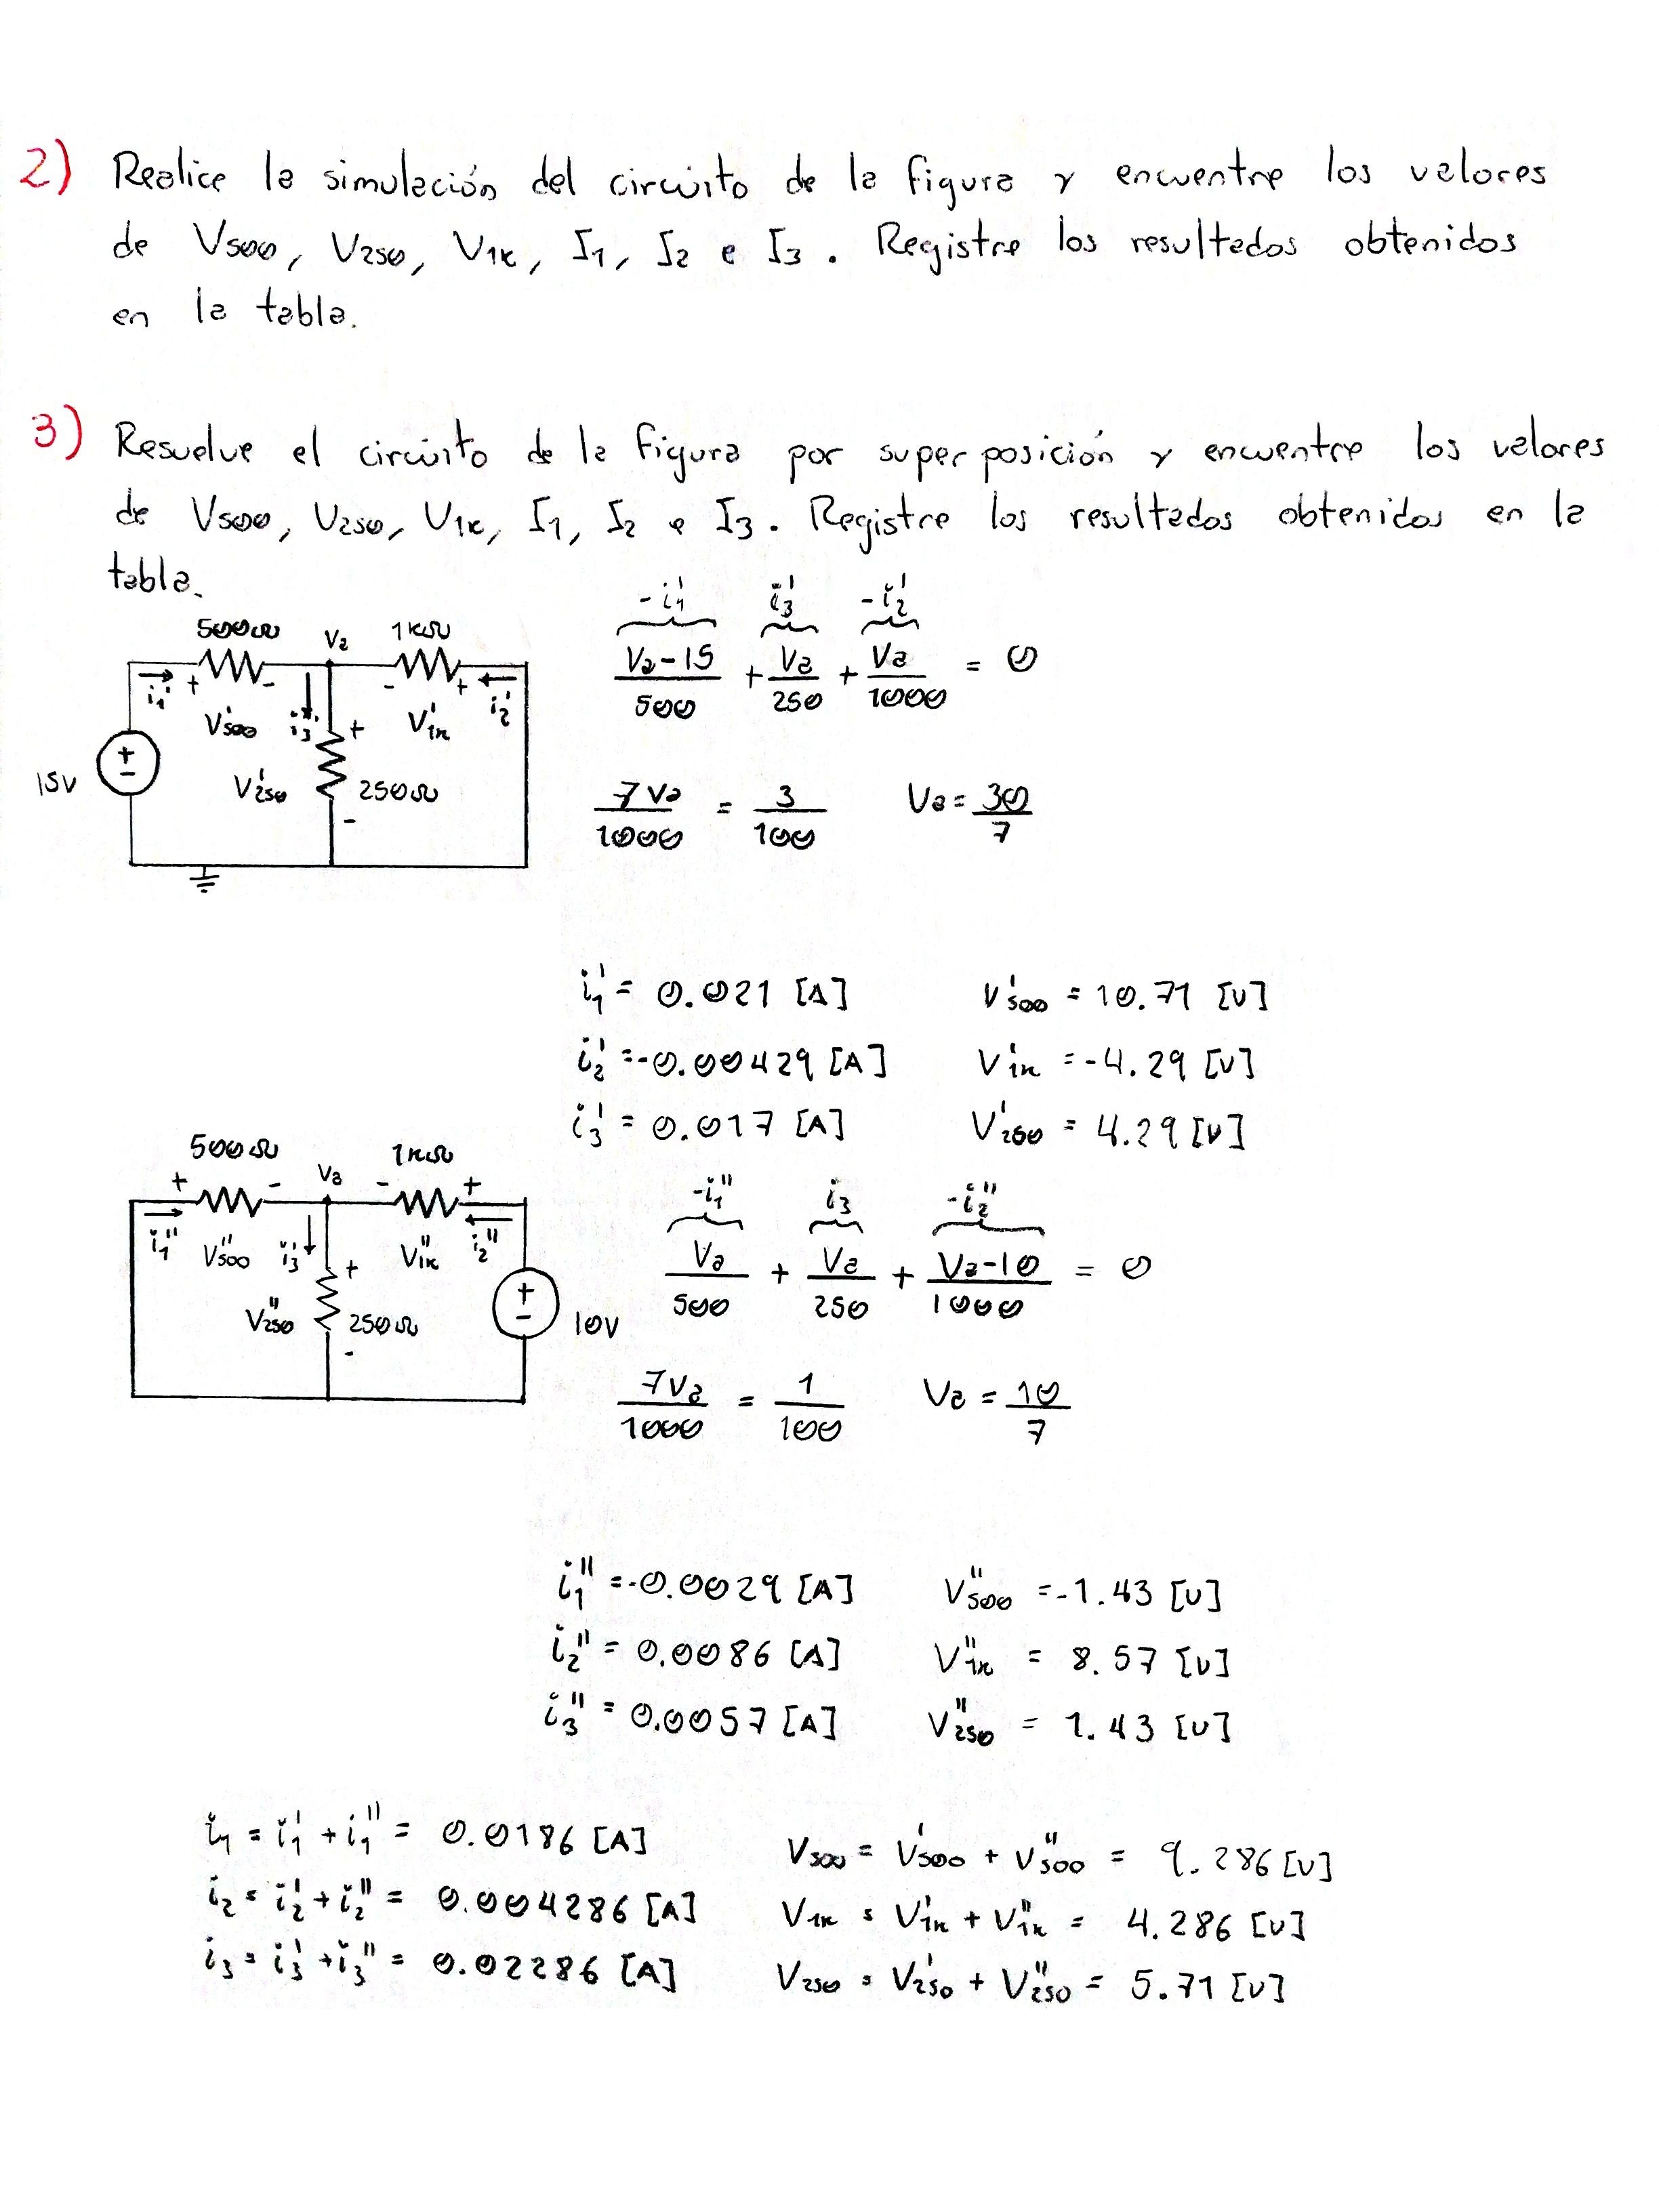 2) Realice la simulación del circuito de la figura y encuentre los valores
de V500, V250, V1K, I1, I2 e I3. Registre los resultados obtenidos
en la tabla.
3) Resuelve el circuito de la figura por superposición y encuentre los valores
de V500, V250, V1K, I1, I2 e I3. Registre los resultados obtenidos en la
tabla.
500Ω Va 1KΩ
i1' + - - + i2'
V'500 i3' + V'1K
15V + - V'250 250Ω -
-i1' i3' -i2'
(Va-15)/500 + Va/250 + Va/1000 = 0
7Va/1000 = 3/100 Va = 30/7
i1' = 0.021 [A] V'500 = 10.71 [V]
i2' = -0.00429 [A] V'1K = -4.29 [V]
i3' = 0.017 [A] V'250 = 4.29 [V]
500Ω Va 1KΩ
+ - - +
i1'' V''500 i3' + V''1K i2''
V''250 250Ω - + - 10V
-i1'' i3 -i2''
Va/500 + Va/250 + (Va-10)/1000 = 0
7Va/1000 = 1/100 Va = 10/7
i1'' = -0.0029 [A] V''500 = -1.43 [V]
i2'' = 0.0086 [A] V''1K = 8.57 [V]
i3'' = 0.0057 [A] V''250 = 1.43 [V]
i1 = i1' + i1'' = 0.0186 [A] V500 = V'500 + V''500 = 9.286 [V]
i2 = i2' + i2'' = 0.004286 [A] V1K = V'1K + V''1K = 4.286 [V]
i3 = i3' + i3'' = 0.02286 [A] V250 = V'250 + V''250 = 5.71 [V]